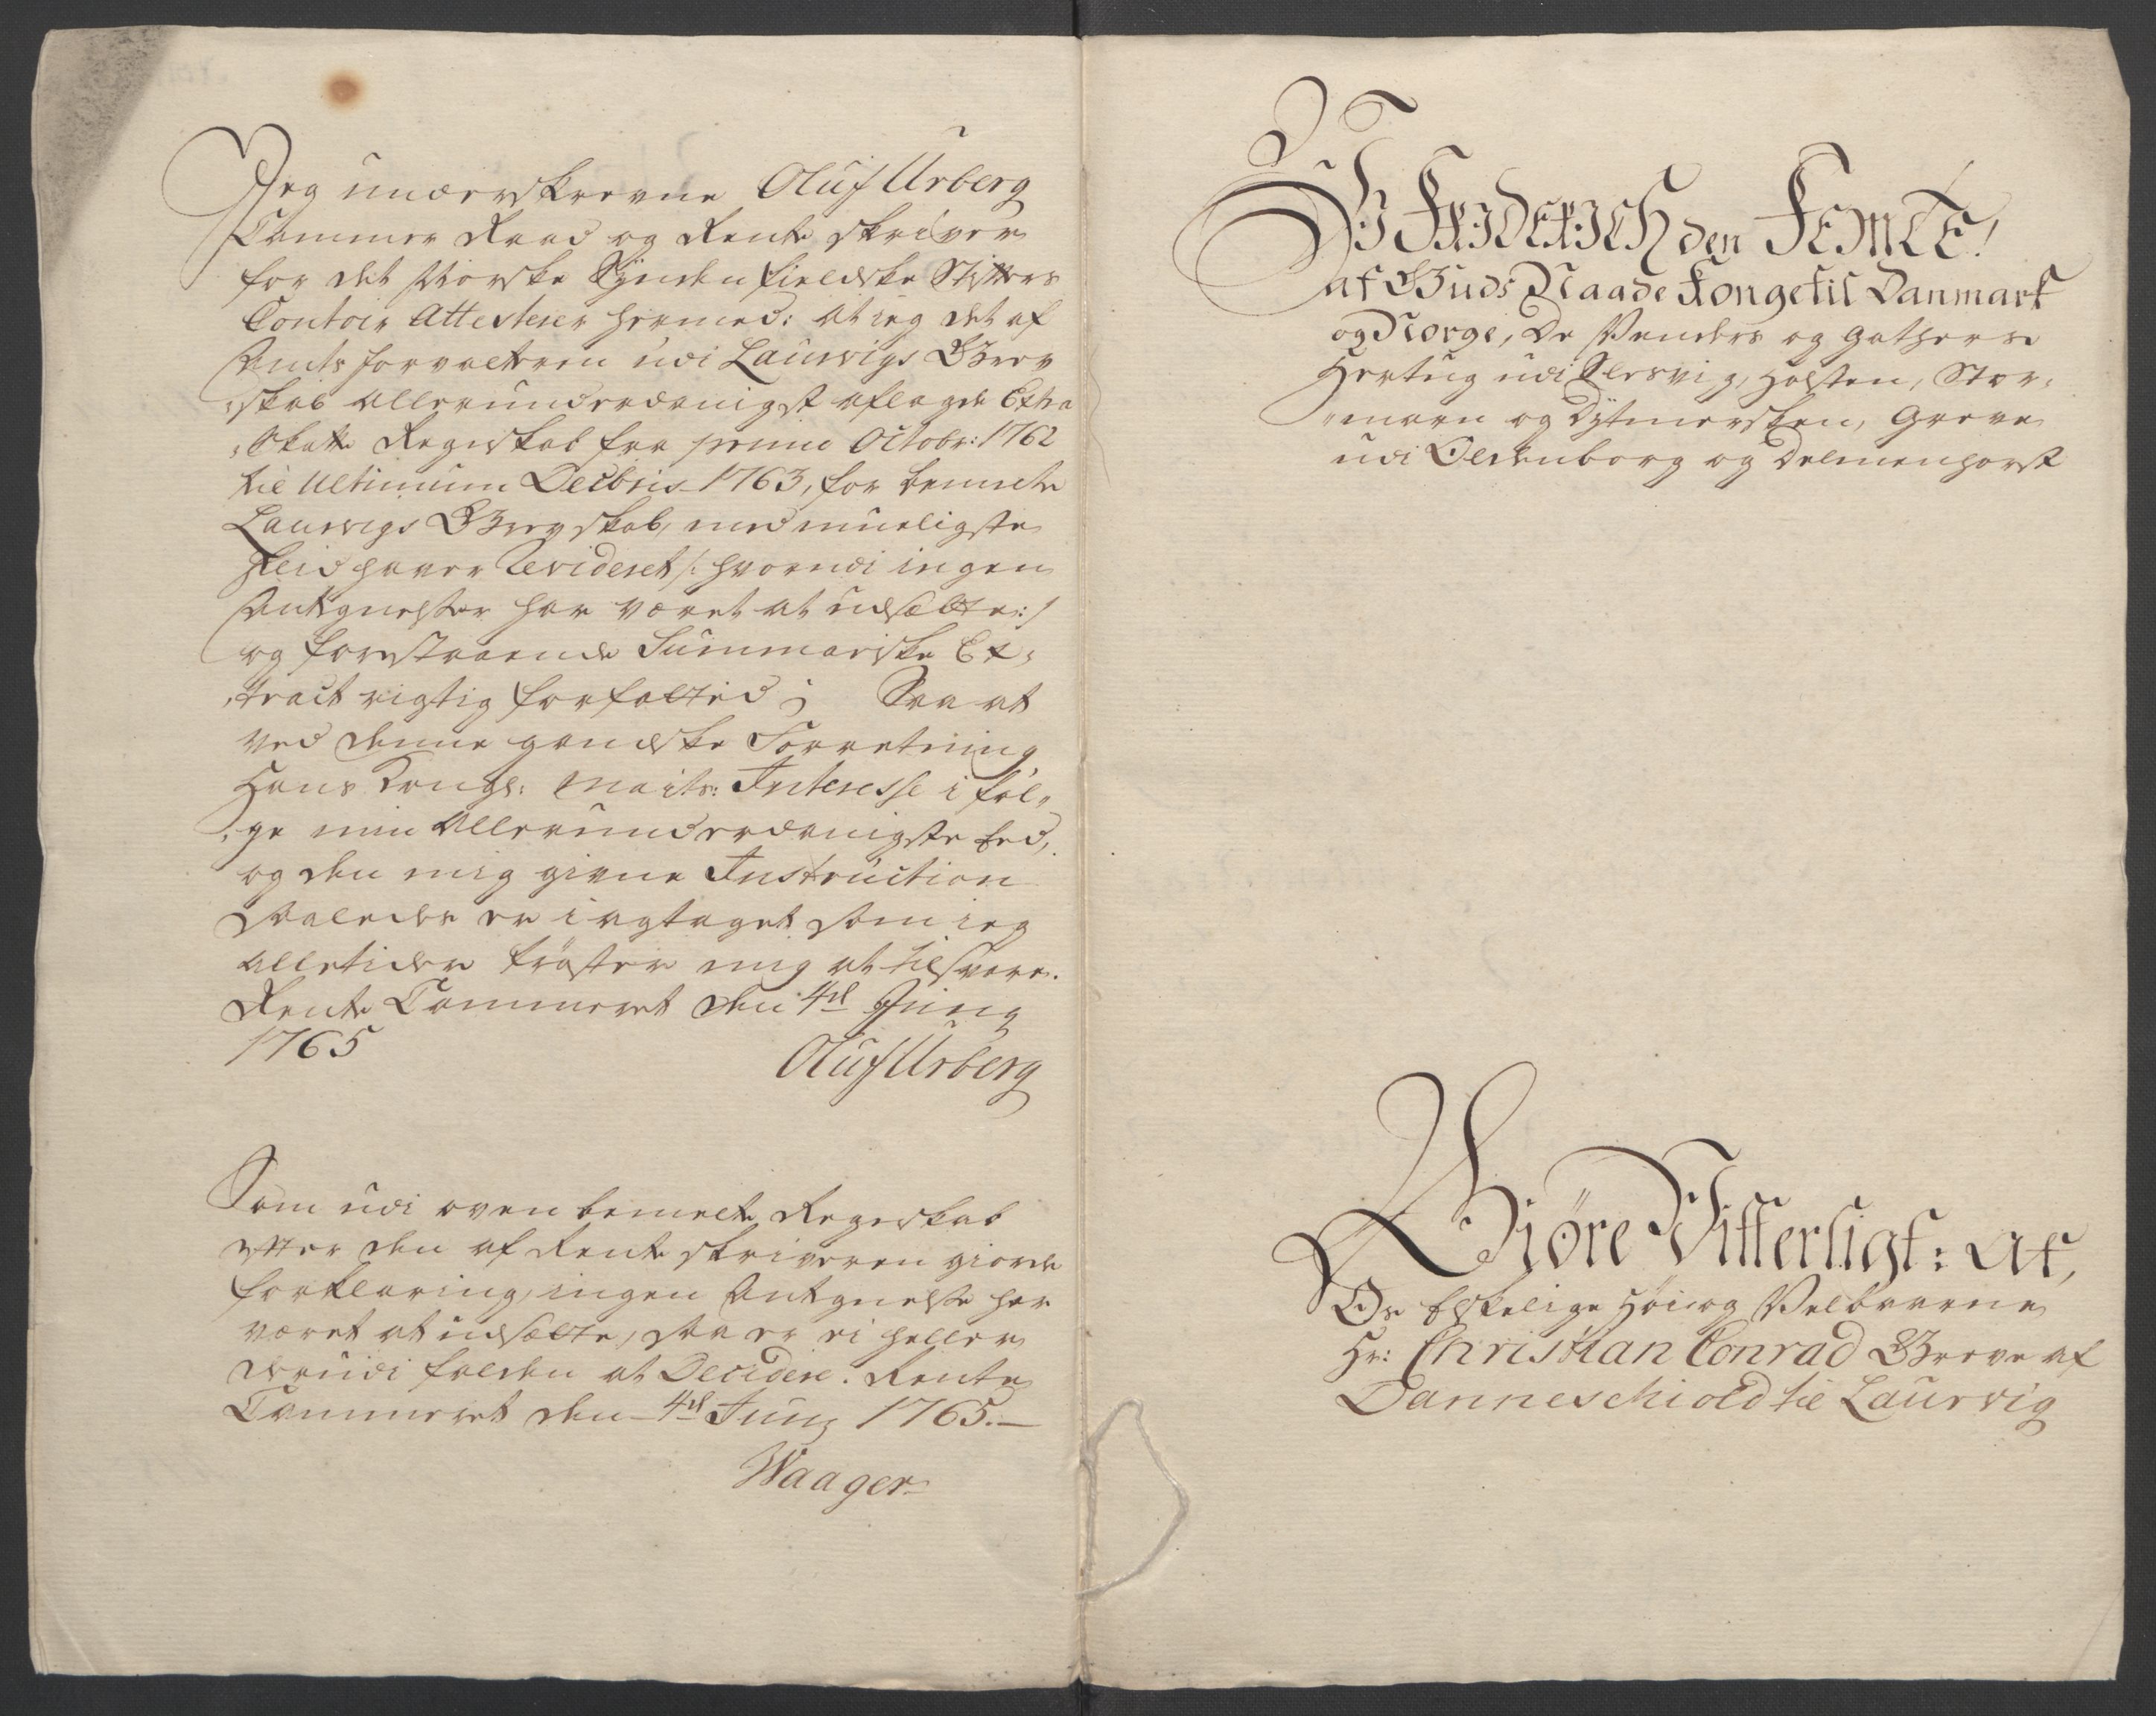 Jeg underskrevne Oluf Urberg
Cammer Raad og Rente skriver
for det Norske Synden fieldske Stifters
Contoir Attesterer hermed: at jeg det af
Amts forvalteren udi Laurvigs Grev
skab allerunderdanigst aflagde Extra
Skatte Regnskab fra primo Octobr: 1762
til ultimum Decbris 1763, for bemelte
Laurvigs Grevskab, med mueligste
Fliid haver Revideret /: hvorudi ingen
Antegnelser har været at udsætte :/
og forestaaende Summariske Ex-
tract rigtig forfatted; Saa at
ved denne gandske Forretning
Hans Kongl: Maits: Interesse i føl-
ge min Allerunderdanigste Eed,
og den mig givne Instruction
saaledes er iagtaget som ieg
alletider trøster mig at tilsvare.
Rente Cammeret den 4de Junij
1765
Oluf Urberg
Som udi oven bemelte Regnskab
efter den af Rente skriveren giorde
forklaring, ingen Antegnelse har
været at udsætte, saa er ei heller
derudi falden at Decidere. Rente
Cammeret den 4de Junij 1765.
Waager
Vi Friderich den Femte!
af Guds Naade Konge til Danmark
og Norge, De Venders og Gothers
Hertug udi Slesvig, Holsten, Stor-
marn og Dytmersken, Greve
udi Oldenborg og Delmenhorst
Giøre Vitterligt: At,
Os Elskelige Høi og Velbaarne
Hr: Christian Conrad Greve af
Danneschiold til Laurvig